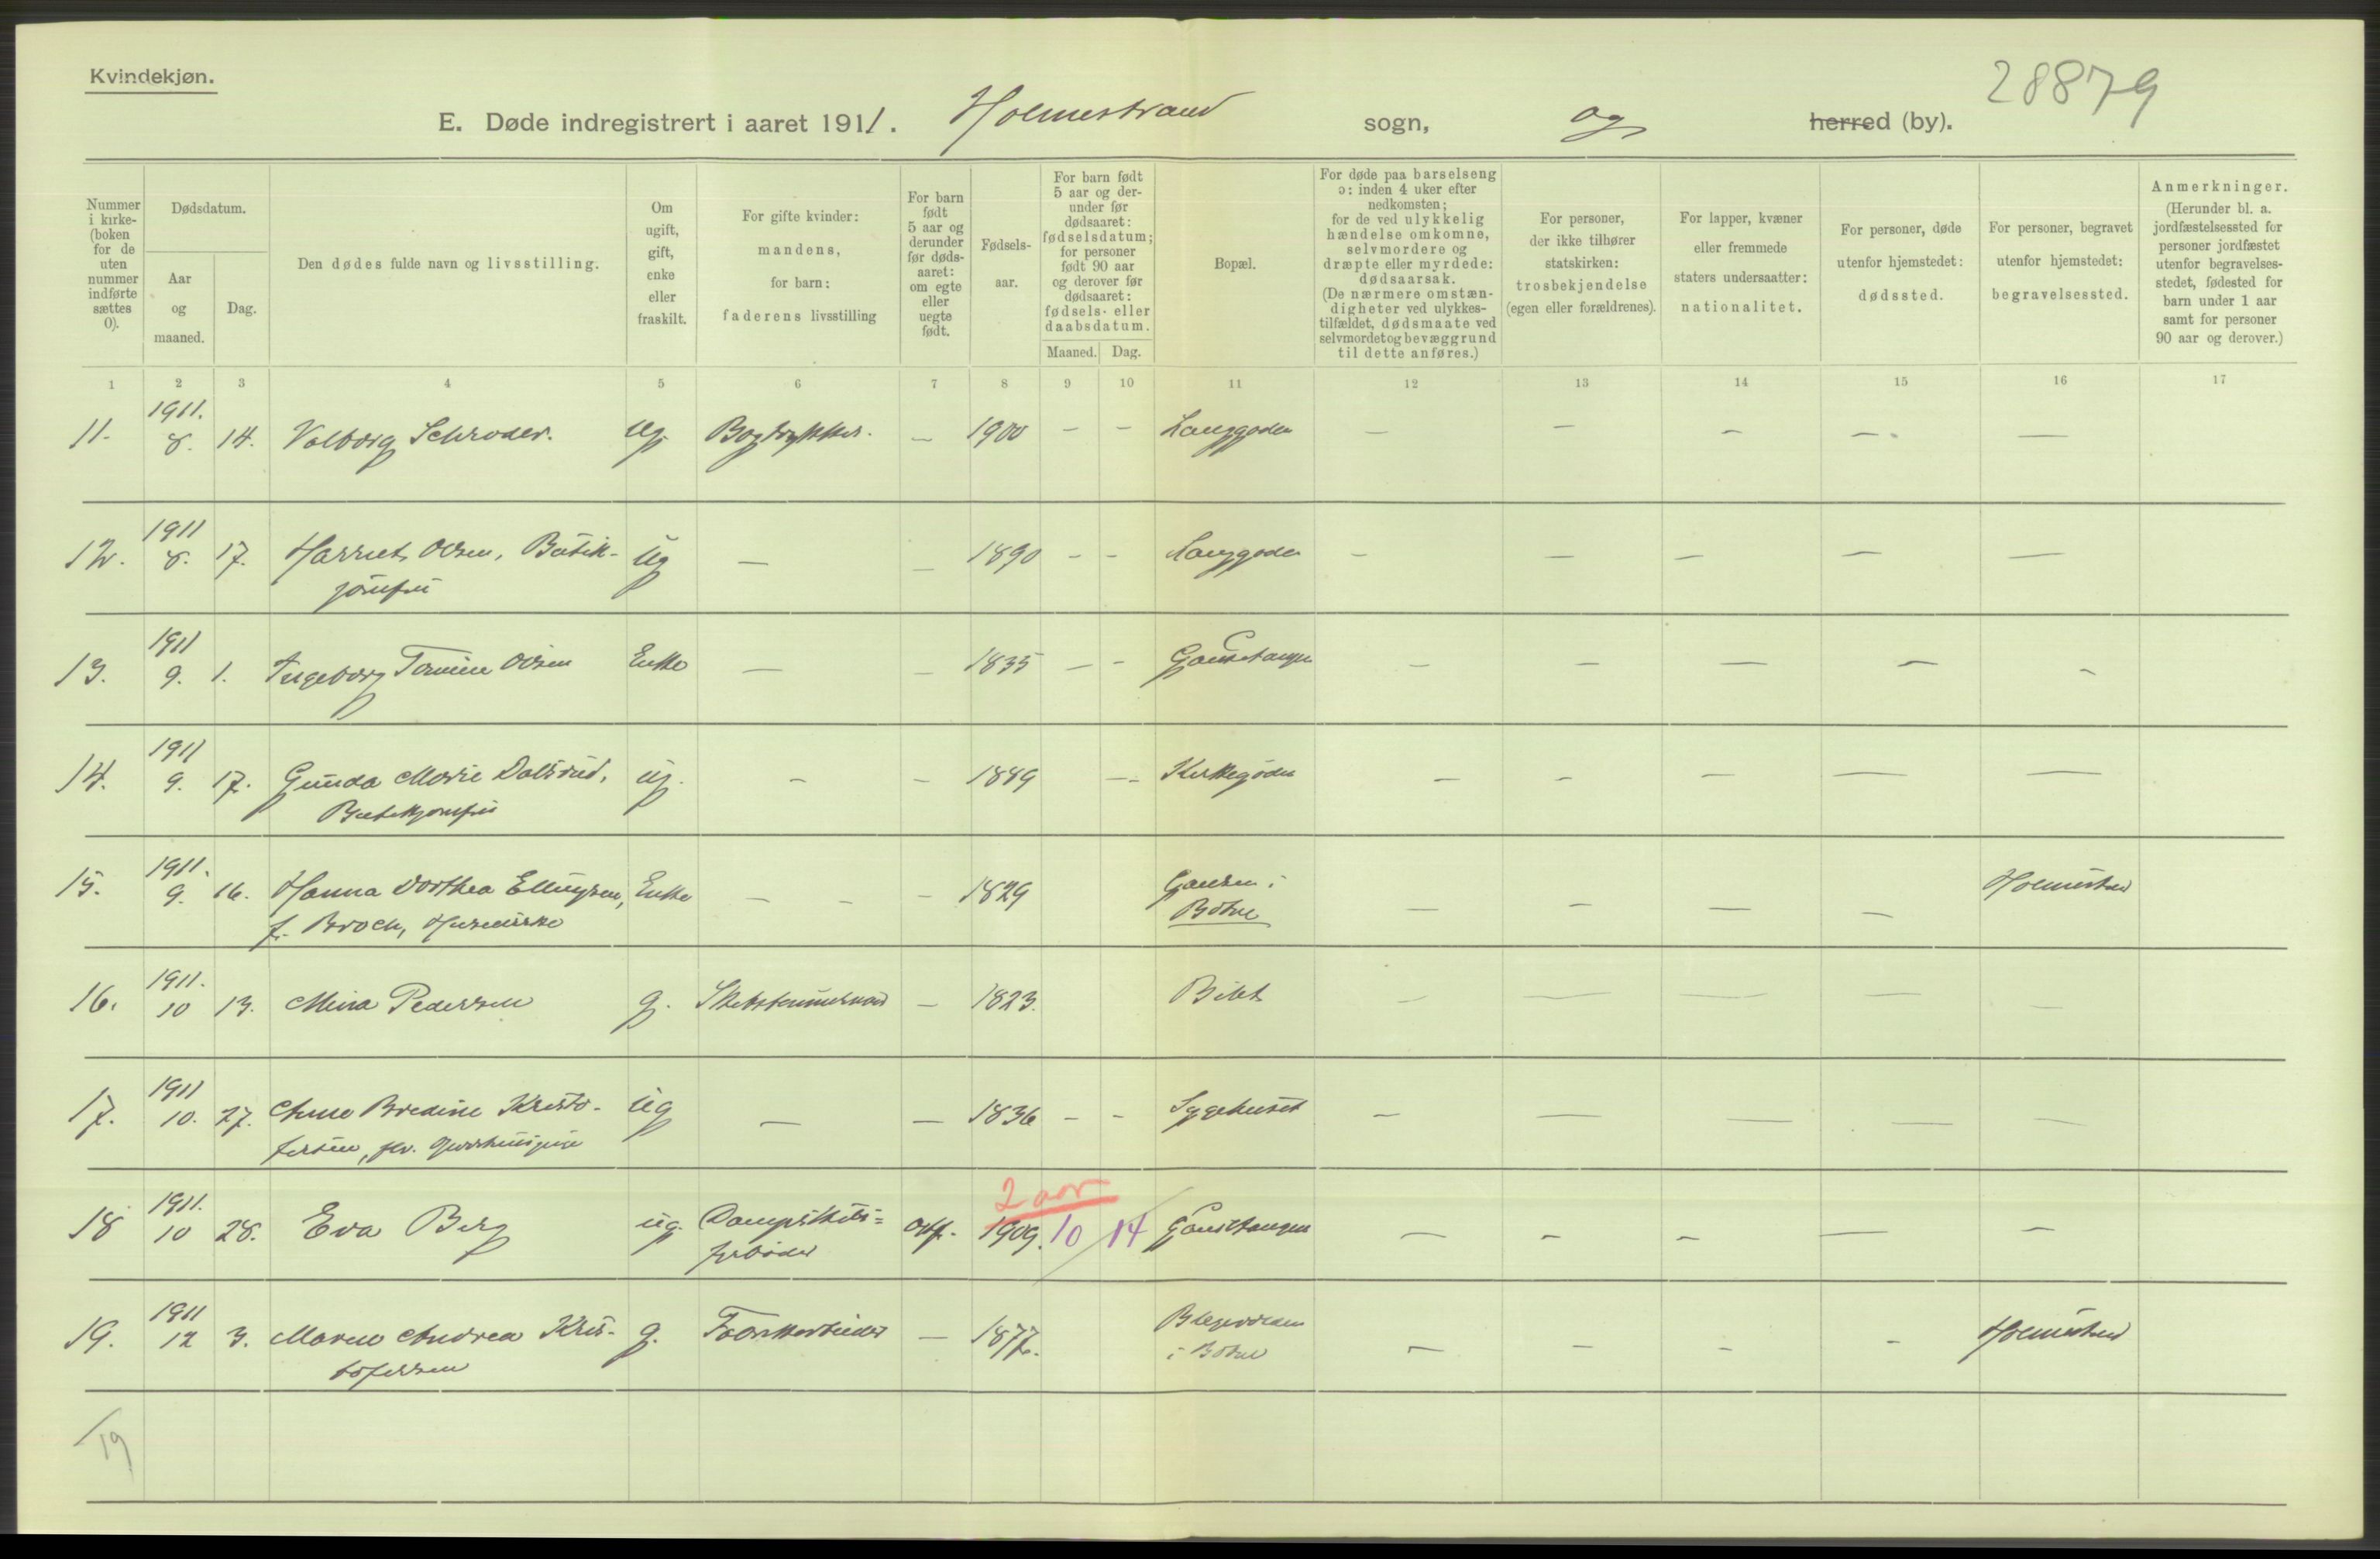 Kvindekjøn.
28879
E. Døde indregistrert i aaret 1911. Holmestrand sogn, og herred (by).
Nummer i kirke-(boken for de uten nummer indførte sættes 0).
Dødsdatum.
Aar og maaned.
Dag.
Den dødes fulde navn og livsstilling.
Om ugift, gift, enke eller fraskilt.
For gifte kvinder: mandens, for barn: faderens livsstilling
For barn født 5 aar og derunder før dødsaaret: om egte eller uegte født.
Fødsels-aar.
For barn født 5 aar og der-under før dødsaaret: fødselsdatum; for personer født 90 aar og derover før dødsaaret: fødsels- eller daabsdatum.
Maaned. Dag.
Bopæl.
For døde paa barselseng ɔ: inden 4 uker efter nedkomsten; for de ved ulykkelig hændelse omkomne, selvmordere og dræpte eller myrdede: dødsaarsak. (De nærmere omstæn-digheter ved ulykkes-tilfældet, dødsmaate ved selvmordet og bevæggrund til dette anføres.)
For personer, der ikke tilhører statskirken: trosbekjendelse (egen eller forældrenes).
For lapper, kvæner eller fremmede staters undersaatter: nationalitet.
For personer, døde utenfor hjemstedet: dødssted.
For personer, begravet utenfor hjemstedet: begravelsessted.
Anmerkninger. (Herunder bl. a. jordfæstelsessted for personer jordfæstet utenfor begravelses-stedet, fødested for barn under 1 aar samt for personer 90 aar og derover.)
1 2 3 4 5 6 7 8 9 10 11 12 13 14 15 16 17
1911.
11. 8. 14. Valborg Schrøder. ug. Bogtrykker. — 1900 — — Langgaden — — — — —
1911
12. 8. 17. Harriet Olsen, Butik- ug — — 1890 — — Langgaden — — — — —
jomfru
1911
13. 9. 1. Ingeborg Tomine Olsen Enke — — 1835 — — Gausetangen — — — — —
1911
14. 9. 17. Gunda Marie Dalsrud, ug. — — 1849 — — Kirkegaden — — — — —
Butikjomfru
1911.
15. 9. 16. Hanna Dorthea Ellingsen, Enke — — — 1829 Gausen i — — — — Holmestrand
f. Broch, Husmoder Botne
1911.
16. 10 13. Mina Pedersen g. Skibstømmermand — 1823. — — — — —
1911
17. 10. 27. Anne Bredine Kristo- ug — — 1836 — — Sygehuset — — — — —
fersen, fhv.
2 aar
1911.
18 10 28. Eva Berg ug. Dampskibs= 1909. 10 14 Gausetangen — — — — —
fyrbøder
1911
19. 12 3. Maren Andrea Kris- g. — 1877. — — — — Holmestrand
tofersen i Botne
19